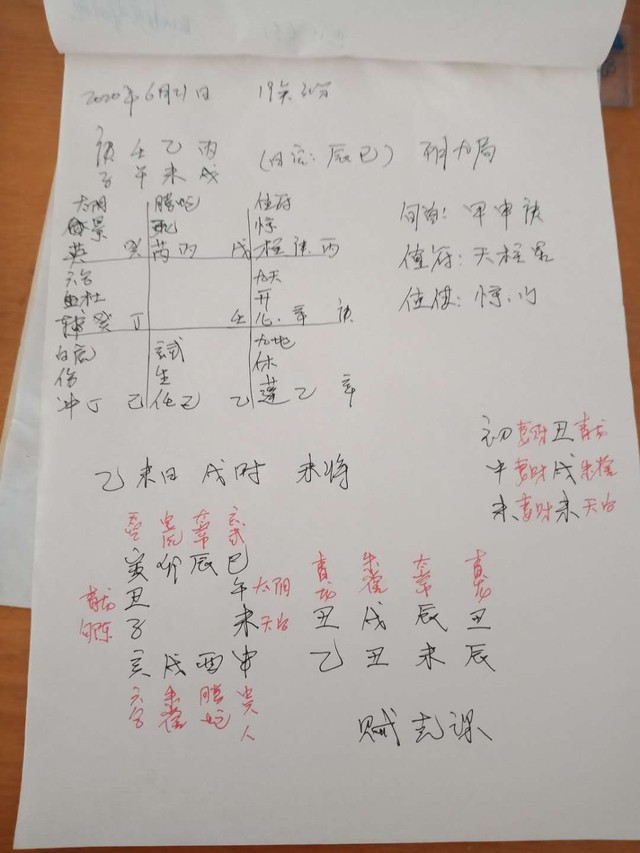 2020年6月21日 19矣31分
庚 壬 乙 丙
子 午 未 戌 (日空: 辰巳) 阳九局
太阴 腾蛇 值符
景 死 惊
英 癸 芮丙 戊 柱庚.丙
六合 九天
杜 开
辅癸 丁 壬 心.辛 庚
白虎 玄武 九地
伤 生 休
冲丁 己 任己 乙 蓬乙 辛
旬首: 甲申庚
值符: 天柱星
值使: 惊门
初 妻财 丑 青龙
中 妻财 戌 朱雀
末 妻财 未 天后
乙未日 戌时 未将
白虎 太常 玄武
寅 卯 辰 巳
青龙 丑 午 太阴
勾陈 子 未 天后
亥 戌 酉 申
六合 朱雀 腾蛇 贵人
青龙 朱雀 太常 青龙
丑 戌 辰 丑
乙 丑 未 辰
贼克课